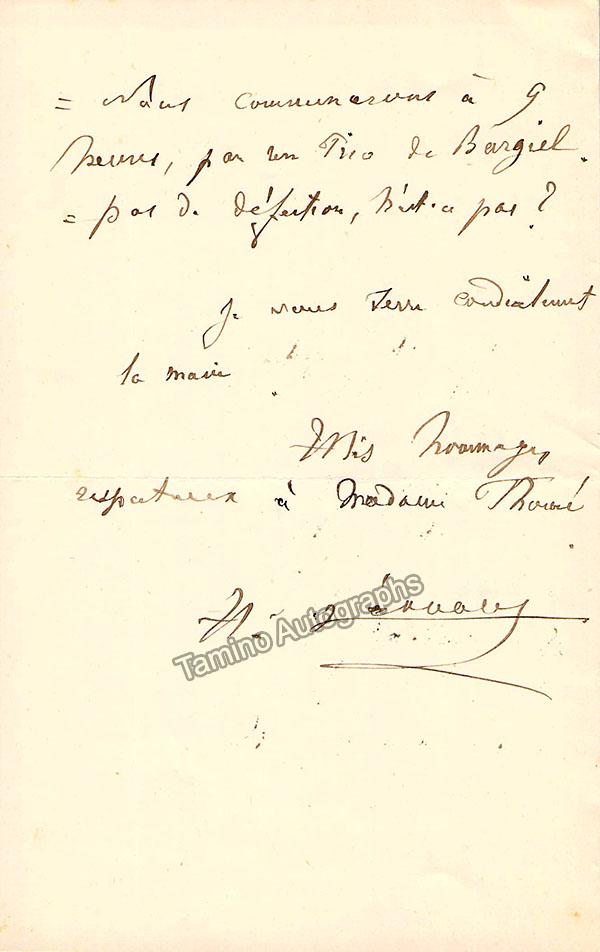 = Nous commencerons à 9
heures, par un Trio de Bargiel.
= pas de défection, n'est-ce pas ?
Je vous serre cordialement
la main
Mes hommages
respectueux à Madame
H.
Tamino Autographs